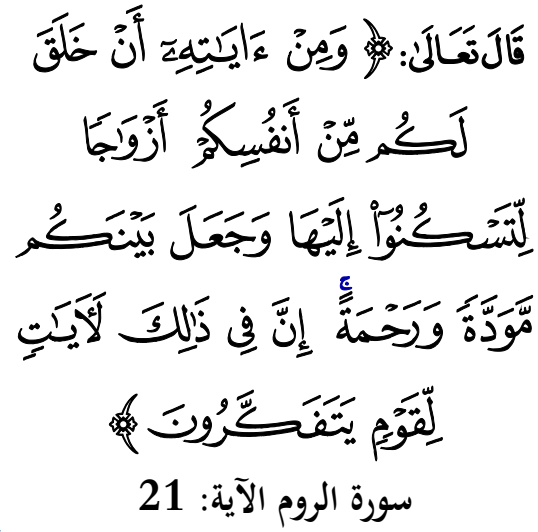 قَالَ تَعَالَىٰ: ﴿ وَمِنْ ءَايَـٰتِهِۦٓ أَنْ خَلَقَ
لَكُم مِّنْ أَنفُسِكُمْ أَزْوَٰجًا
لِّتَسْكُنُوٓا۟ إِلَيْهَا وَجَعَلَ بَيْنَكُم
مَّوَدَّةً وَرَحْمَةً ۚ إِنَّ فِى ذَٰلِكَ لَـَٔايَـٰتٍ
لِّقَوْمٍ يَتَفَكَّرُونَ ﴾
سورة الروم الآية: 21